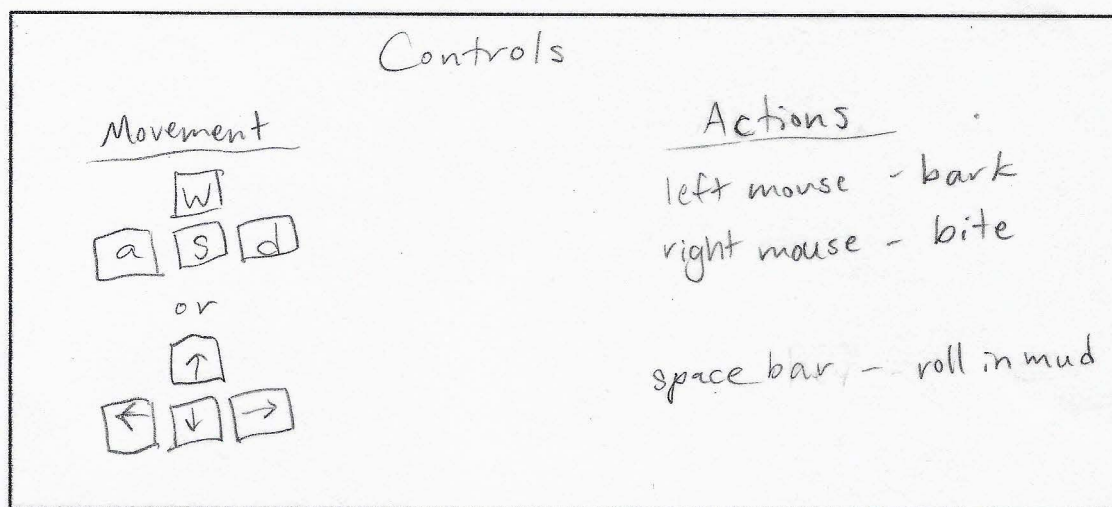 Controls
Movement
W
a s d
or
↑
← ↓ →
Actions
left mouse - bark
right mouse - bite
space bar - roll in mud